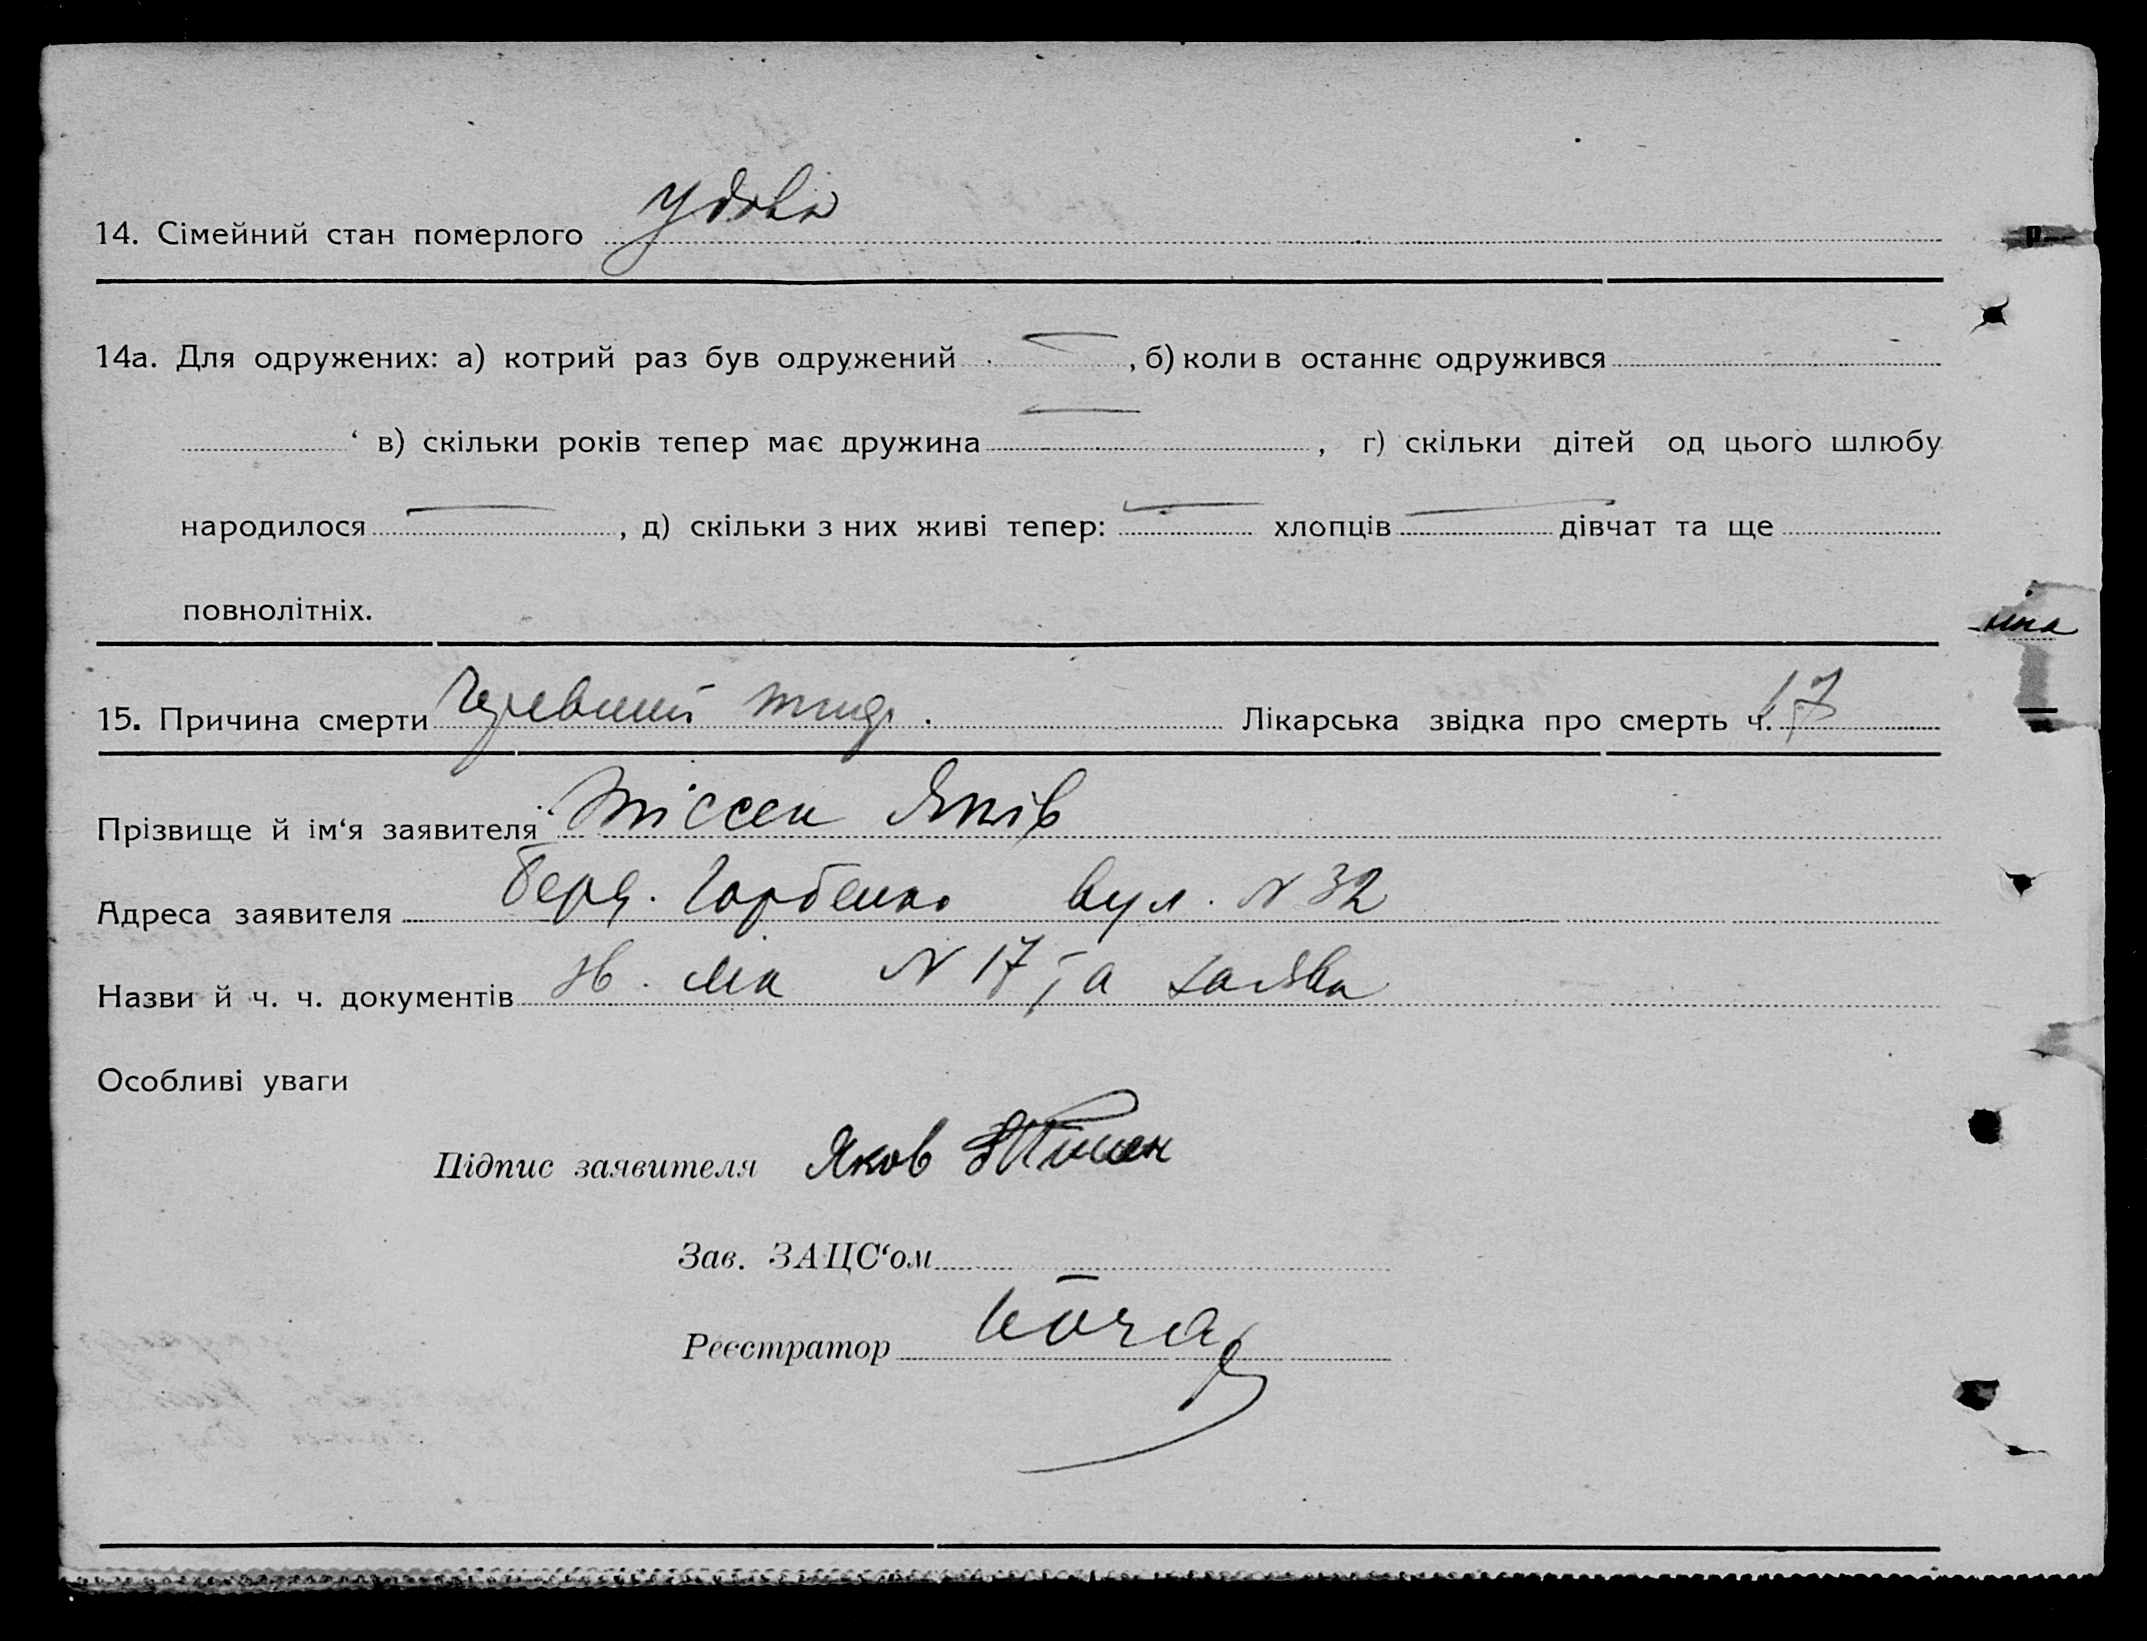 14. Сімейний стан померлого удова
14а. Для одружених: а) котрий раз був одружений —, б) коли в останнє одружився
‘ в) скільки років тепер має дружина —, г) скільки дітей од цього шлюбу
народилося —, д) скільки з них живі тепер: — хлопців — дівчат та ще
повнолітніх.
15. Причина смерти Черевний тиф. Лікарська звідка про смерть ч. 17
Прізвище й ім‘я заявителя Тіссен Яків
Адреса заявителя Горбенко вул. N 32
Назви й ч. ч. документів зв. лік N 17 та заява
Особливі уваги
Підпис заявителя Яков
Зав. ЗАЦС‘ом
Реєстратор